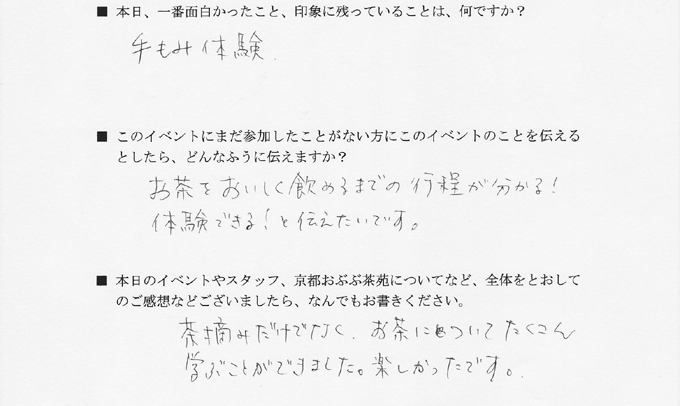 ■ 本日、一番面白かったこと、印象に残っていることは、何ですか？
手もみ体験.
■ このイベントにまだ参加したことがない方にこのイベントのことを伝える
としたら、どんなふうに伝えますか？
お茶をおいしく飲めるまでの行程が分かる！
体験できる！と伝えたいです。
■ 本日のイベントやスタッフ、京都おぶぶ茶苑についてなど、全体をとおして
のご感想などございましたら、なんでもお書きください。
茶摘みだけでなく、お茶についてたくさん
学ぶことができました。楽しかったです。